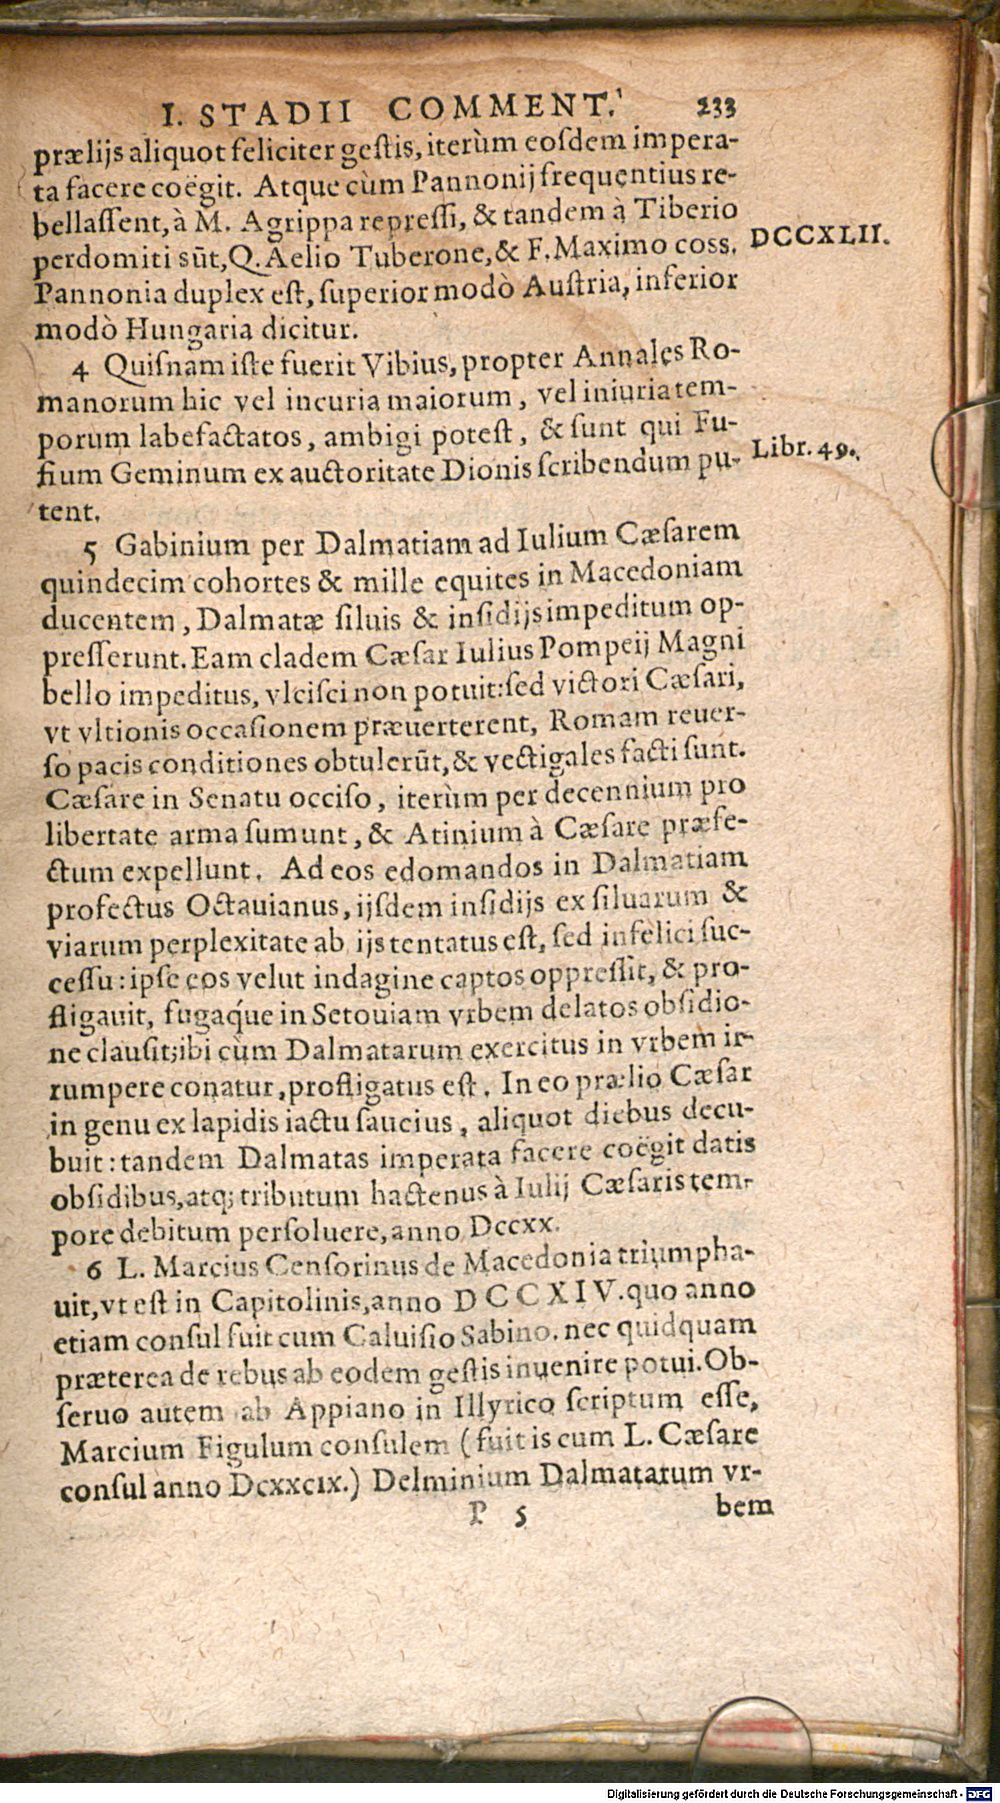 I. STADII COMMENT. 233
prælijs aliquot feliciter gestis, iterùm eosdem impera-
ta facere coëgit. Atque cùm Pannonij frequentius re-
bellassent, à M. Agrippa repressi, & tandem à Tiberio
perdomiti sūt, Q. Aelio Tuberone, & F. Maximo coss. DCCXLII.
Pannonia duplex est, superior modò Austria, inferior
modò Hungaria dicitur.
4 Quisnam iste fuerit Vibius, propter Annales Ro-
manorum hic vel incuria maiorum, vel iniuria tem-
porum labefactatos, ambigi potest, & sunt qui Fu-
fium Geminum ex auctoritate Dionis scribendum pu- Libr. 49.
tent.
5 Gabinium per Dalmatiam ad Iulium Cæsarem
quindecim cohortes & mille equites in Macedoniam
ducentem, Dalmatæ siluis & insidijs impeditum op-
presserunt. Eam cladem Cæsar Iulius Pompeij Magni
bello impeditus, vlcisci non potuit: sed victori Cæsari,
vt vltionis occasionem præuerterent, Romam reuer-
so pacis conditiones obtulerūt, & vectigales facti sunt.
Cæsare in Senatu occiso, iterùm per decennium pro
libertate arma sumunt, & Atinium à Cæsare præfe-
ctum expellunt. Ad eos edomandos in Dalmatiam
profectus Octauianus, ijsdem insidijs ex siluarum &
viarum perplexitate ab ijs tentatus est, sed infelici suc-
cessu: ipse eos velut indagine captos oppressit, & pro-
fligauit, fugaq́ue in Setouiam vrbem delatos obsidio-
ne clausit; ibi cùm Dalmatarum exercitus in vrbem ir-
rumpere conatur, profligatus est. In eo prælio Cæsar
in genu ex lapidis iactu saucius, aliquot diebus decu-
buit: tandem Dalmatas imperata facere coëgit datis
obsidibus, atq; tributum hactenus à Iulij Cæsaris tem-
pore debitum persoluere, anno Dccxx.
6 L. Marcius Censorinus de Macedonia triumpha-
uit, vt est in Capitolinis, anno DCCXIV. quo anno
etiam consul fuit cum Caluisio Sabino. nec quidquam
præterea de rebus ab eodem gestis inuenire potui. Ob-
seruo autem ab Appiano in Illyrico scriptum esse,
Marcium Figulum consulem (fuit is cum L. Cæsare
consul anno Dcxxcix.) Delminium Dalmatarum vr-
P 5 bem
Digitalisierung gefördert durch die Deutsche Forschungsgemeinschaft - DFG